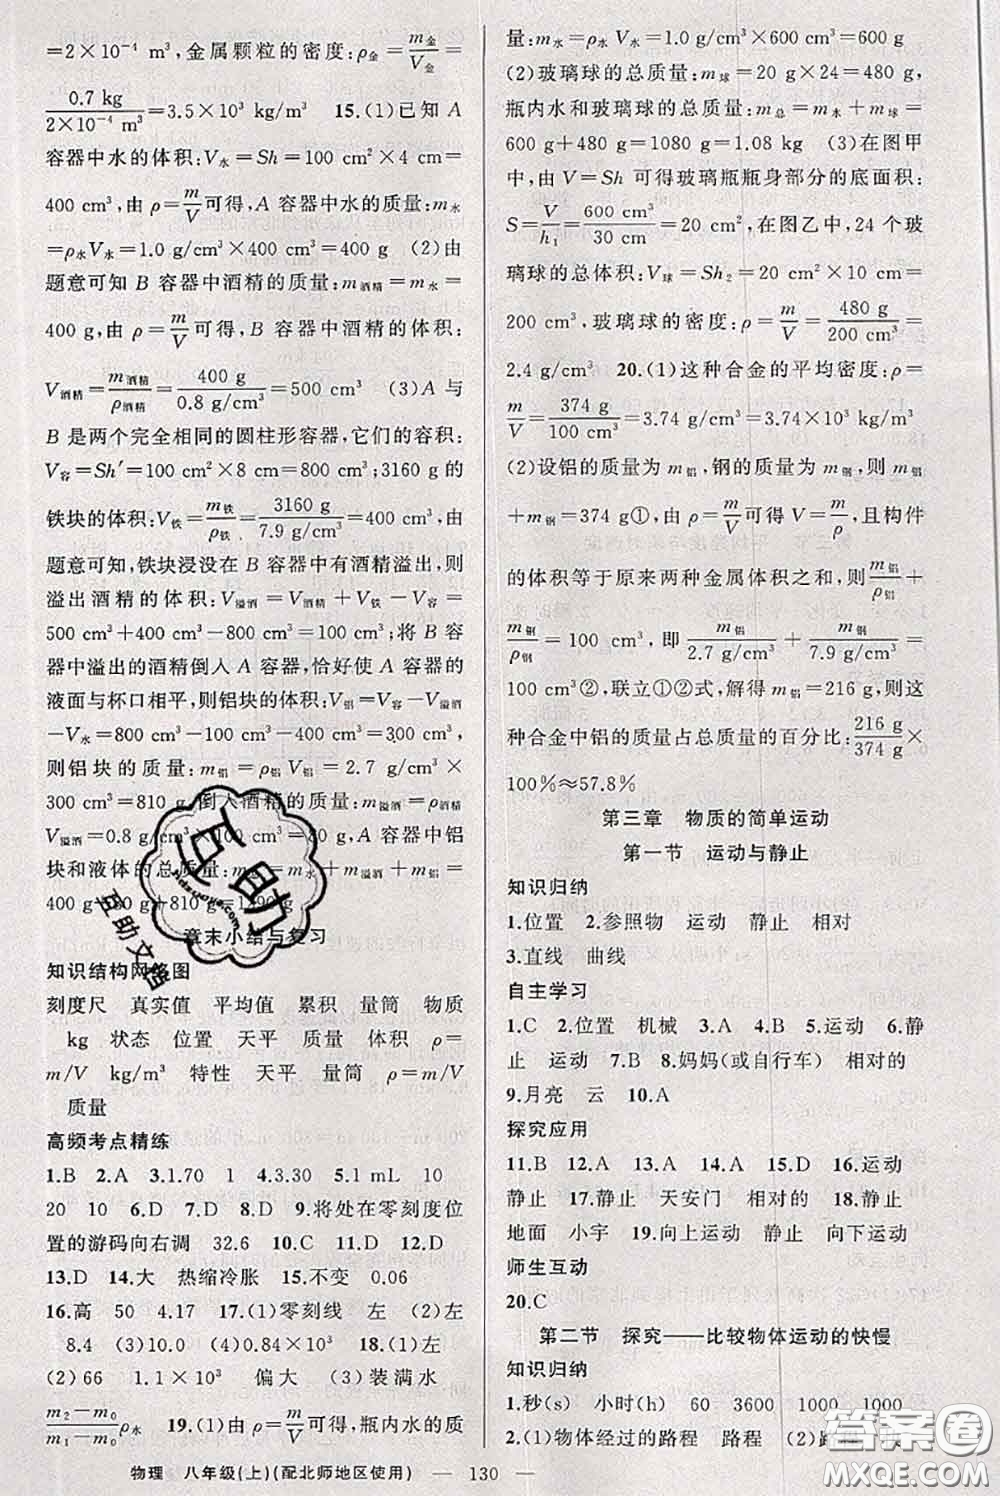 =2×10⁻⁴ m³,金属颗粒的密度:ρ金=m金/V金=
0.7 kg/2×10⁻⁴ m³=3.5×10³ kg/m³ 15.(1)已知 A
容器中水的体积:V水=Sh=100 cm²×4 cm=
400 cm³,由 ρ=m/V可得,A 容器中水的质量:m水
=ρ水V水=1.0 g/cm³×400 cm³=400 g (2)由
题意可知 B 容器中酒精的质量:m酒精=m水=
400 g,由 ρ=m/V可得,B 容器中酒精的体积:
V酒精=m酒精/ρ酒精=400 g/0.8 g/cm³=500 cm³ (3)A 与
B 是两个完全相同的圆柱形容器,它们的容积:
V容=Sh′=100 cm²×8 cm=800 cm³;3160 g 的
铁块的体积:V铁=m铁/ρ铁=3160 g/7.9 g/cm³=400 cm³,由
题意可知,铁块浸没在 B 容器中有酒精溢出,则
溢出酒精的体积:V溢酒=V酒精+V铁-V容=
500 cm³+400 cm³-800 cm³=100 cm³;将 B 容
器中溢出的酒精倒入 A 容器,恰好使 A 容器的
液面与杯口相平,则铝块的体积:V铝=V容-V溢酒
-V水=800 cm³-100 cm³-400 cm³=300 cm³,
则铝块的质量:m铝=ρ铝V铝=2.7 g/cm³×
300 cm³=810 g,倒入酒精的质量:m溢酒=ρ酒精
V溢酒=0.8 g/cm³×100 cm³=80 g,A 容器中铝
块和液体的总质量:m总=m水+m溢酒+m铝=
400 g+80 g+810 g=1290 g
章末小结与复习
知识结构网络图
刻度尺 真实值 平均值 累积 量筒 物质
kg 状态 位置 天平 质量 体积 ρ=
m/V kg/m³ 特性 天平 量筒 ρ=m/V
质量
高频考点精练
1.B 2.A 3.1.70 1 4.3.30 5.1 mL 10
20 10 6.D 7.D 8.C 9.将处在零刻度位
置的游码向右调 32.6 10.C 11.D 12.D
13.D 14.大 热缩冷胀 15.不变 0.06
16.高 50 4.17 17.(1)零刻线 左 (2)左
8.4 (3)10.0 (4)0.84×10³ 18.(1)左
(2)66 1.1×10³ 偏大 (3)装满水
m₂-m₀/m₁-m₀ρ水 19.(1)由 ρ=m/V可得,瓶内水的质
量:m水=ρ水V水=1.0 g/cm³×600 cm³=600 g
(2)玻璃球的总质量:m球=20 g×24=480 g,
瓶内水和玻璃球的总质量:m总=m水+m球=
600 g+480 g=1080 g=1.08 kg (3)在图甲
中,由 V=Sh 可得玻璃瓶瓶身部分的底面积:
S=V/h₁=600 cm³/30 cm=20 cm²,在图乙中,24 个玻
璃球的总体积:V球=Sh₂=20 cm²×10 cm=
200 cm³,玻璃球的密度:ρ=m/V=480 g/200 cm³=
2.4 g/cm³ 20.(1)这种合金的平均密度:ρ=
m/V=374 g/100 cm³=3.74 g/cm³=3.74×10³ kg/m³
(2)设铝的质量为 m铝,钢的质量为 m钢,则 m铝
+m钢=374 g①,由 ρ=m/V可得 V=m/ρ,且构件
的体积等于原来两种金属体积之和,则m铝/ρ铝+
m钢/ρ钢=100 cm³,即m铝/2.7 g/cm³+m钢/7.9 g/cm³=
100 cm³②,联立①②式,解得 m铝=216 g,则这
种合金中铝的质量占总质量的百分比:216 g/374 g×
100%≈57.8%
第三章 物质的简单运动
第一节 运动与静止
知识归纳
1.位置 2.参照物 运动 静止 相对
3.直线 曲线
自主学习
1.C 2.位置 机械 3.A 4.B 5.运动 6.静
止 运动 7.B 8.妈妈(或自行车) 相对的
9.月亮 云 10.A
探究应用
11.B 12.A 13.A 14.B 15.D 16.运动
静止 17.静止 天安门 相对的 18.静止
地面 小宇 19.向上运动 静止 向下运动
师生互动
20.C
第二节 探究——比较物体运动的快慢
知识归纳
1.秒(s) 小时(h) 60 3600 1000 1000
2.(1)物体经过的路程 路程 (2)路程
物理 八年级(上)(配北师地区使用) — 130 —
互助
互助文档
答案圈
MXQE.COM